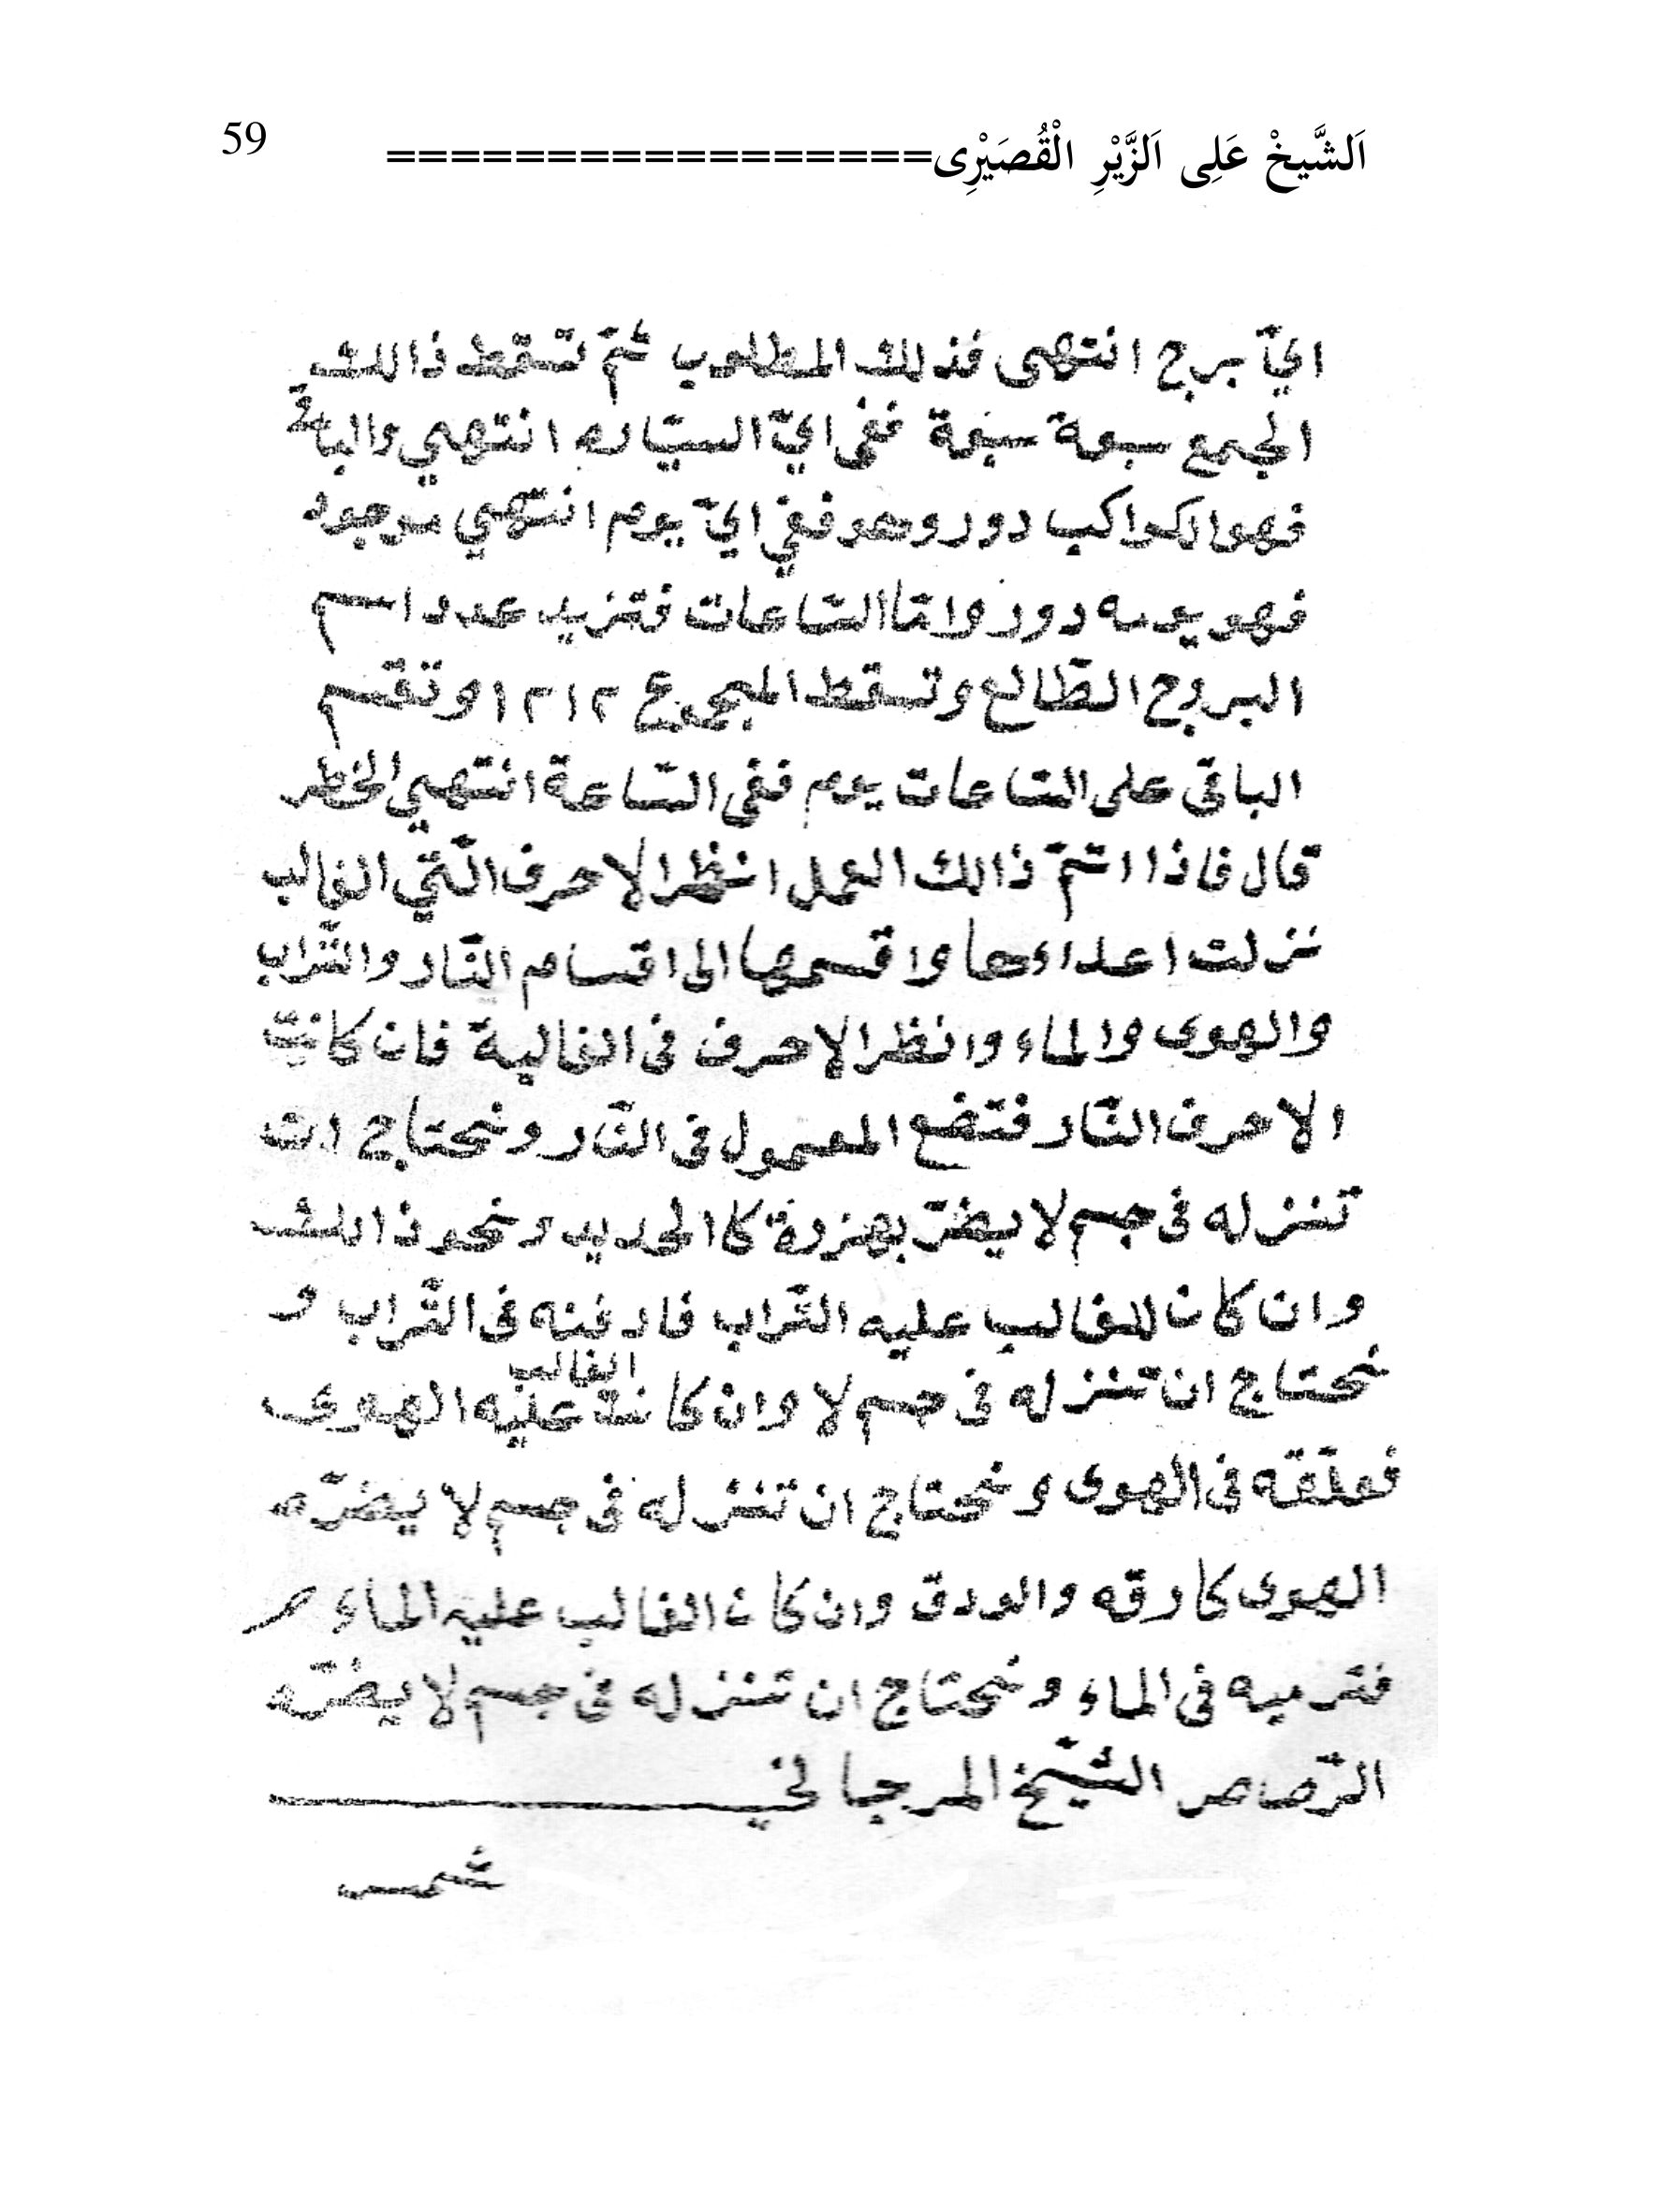 اَلشَّيخْ عَلِى اَلزَّيْرِ الْقُصَيْرِى================= 59
ايّ برج انتهى فذلك المطلوب ثمّ تسقط ذالك
الجمع سبعة سبعة ففى ايّ السيّاره انتهي والباقى
فهو الكواكب دور وهو ففي ايّ يوم انتهي موجود
فهو يومه دور وامّا السّاعات فتزيد عدد اسم
البروج الطّالع وتسقط المجموع ١٢١٢ وتقسم
الباقى على السّاعات يوم ففى السّاعة انتهي الخطر
قال فاذا اتمّ ذالك العمل انظر الاحرف الّتي الغالب
نزلت اعداءها واقسمها الى اقسام النّار والتّراب
والهوى والماء وانظر الاحرف فى الغالبة فان كانت
الاحرف النّار فتضع المعمول فى النّار ونحتاج ان
تنزله فى جسم لا يضرّ بهزوة كا الحديد ونحو ذالك
وان كان للغالب عليه التّراب فادفنه فى التّراب و
نحتاج ان تنزله فى جسم لا وان كانت الغالب عليه الهوى
فعلّقه فى الهوى ونحتاج ان تنزله فى جسم لا يضرّه
الهوى كا رقه والورق وان كان الغالب عليه الماء
فترميه فى الماء ونحتاج ان تنزله فى جسم لا يضرّه
الرّصاص الشّيخ المرجاني
شمس